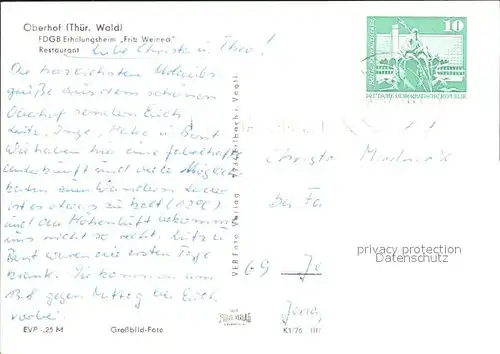 Oberhof (Thür. Wald)
FDGB Erholungsheim „Fritz Weineck"
Restaurant
Liebe Christa u. Theo!
Die herzlichsten Urlaubs
grüße aus dem schönen
Oberhof senden Euch
Lutz, Inge, Heike u. Bernt
Wir haben hier eine fabelhafte
Unterkunft und viele Möglich
keiten zum Wandern. Leider
ist es etwas zu kalt
und die Höhenluft bekommt
uns nicht so recht. Lutz u.
Bernt waren die ersten Tage
krank. Wir kommen am
gegen Mittag bei Euch
vorbei.
EVP -.25 M
Großbild-Foto
VEB Foto-Verlag
10
DEUTSCHE DEMOKRATISCHE REPUBLIK
Christa
bei
69 Je
Jena
privacy protection
K1/76